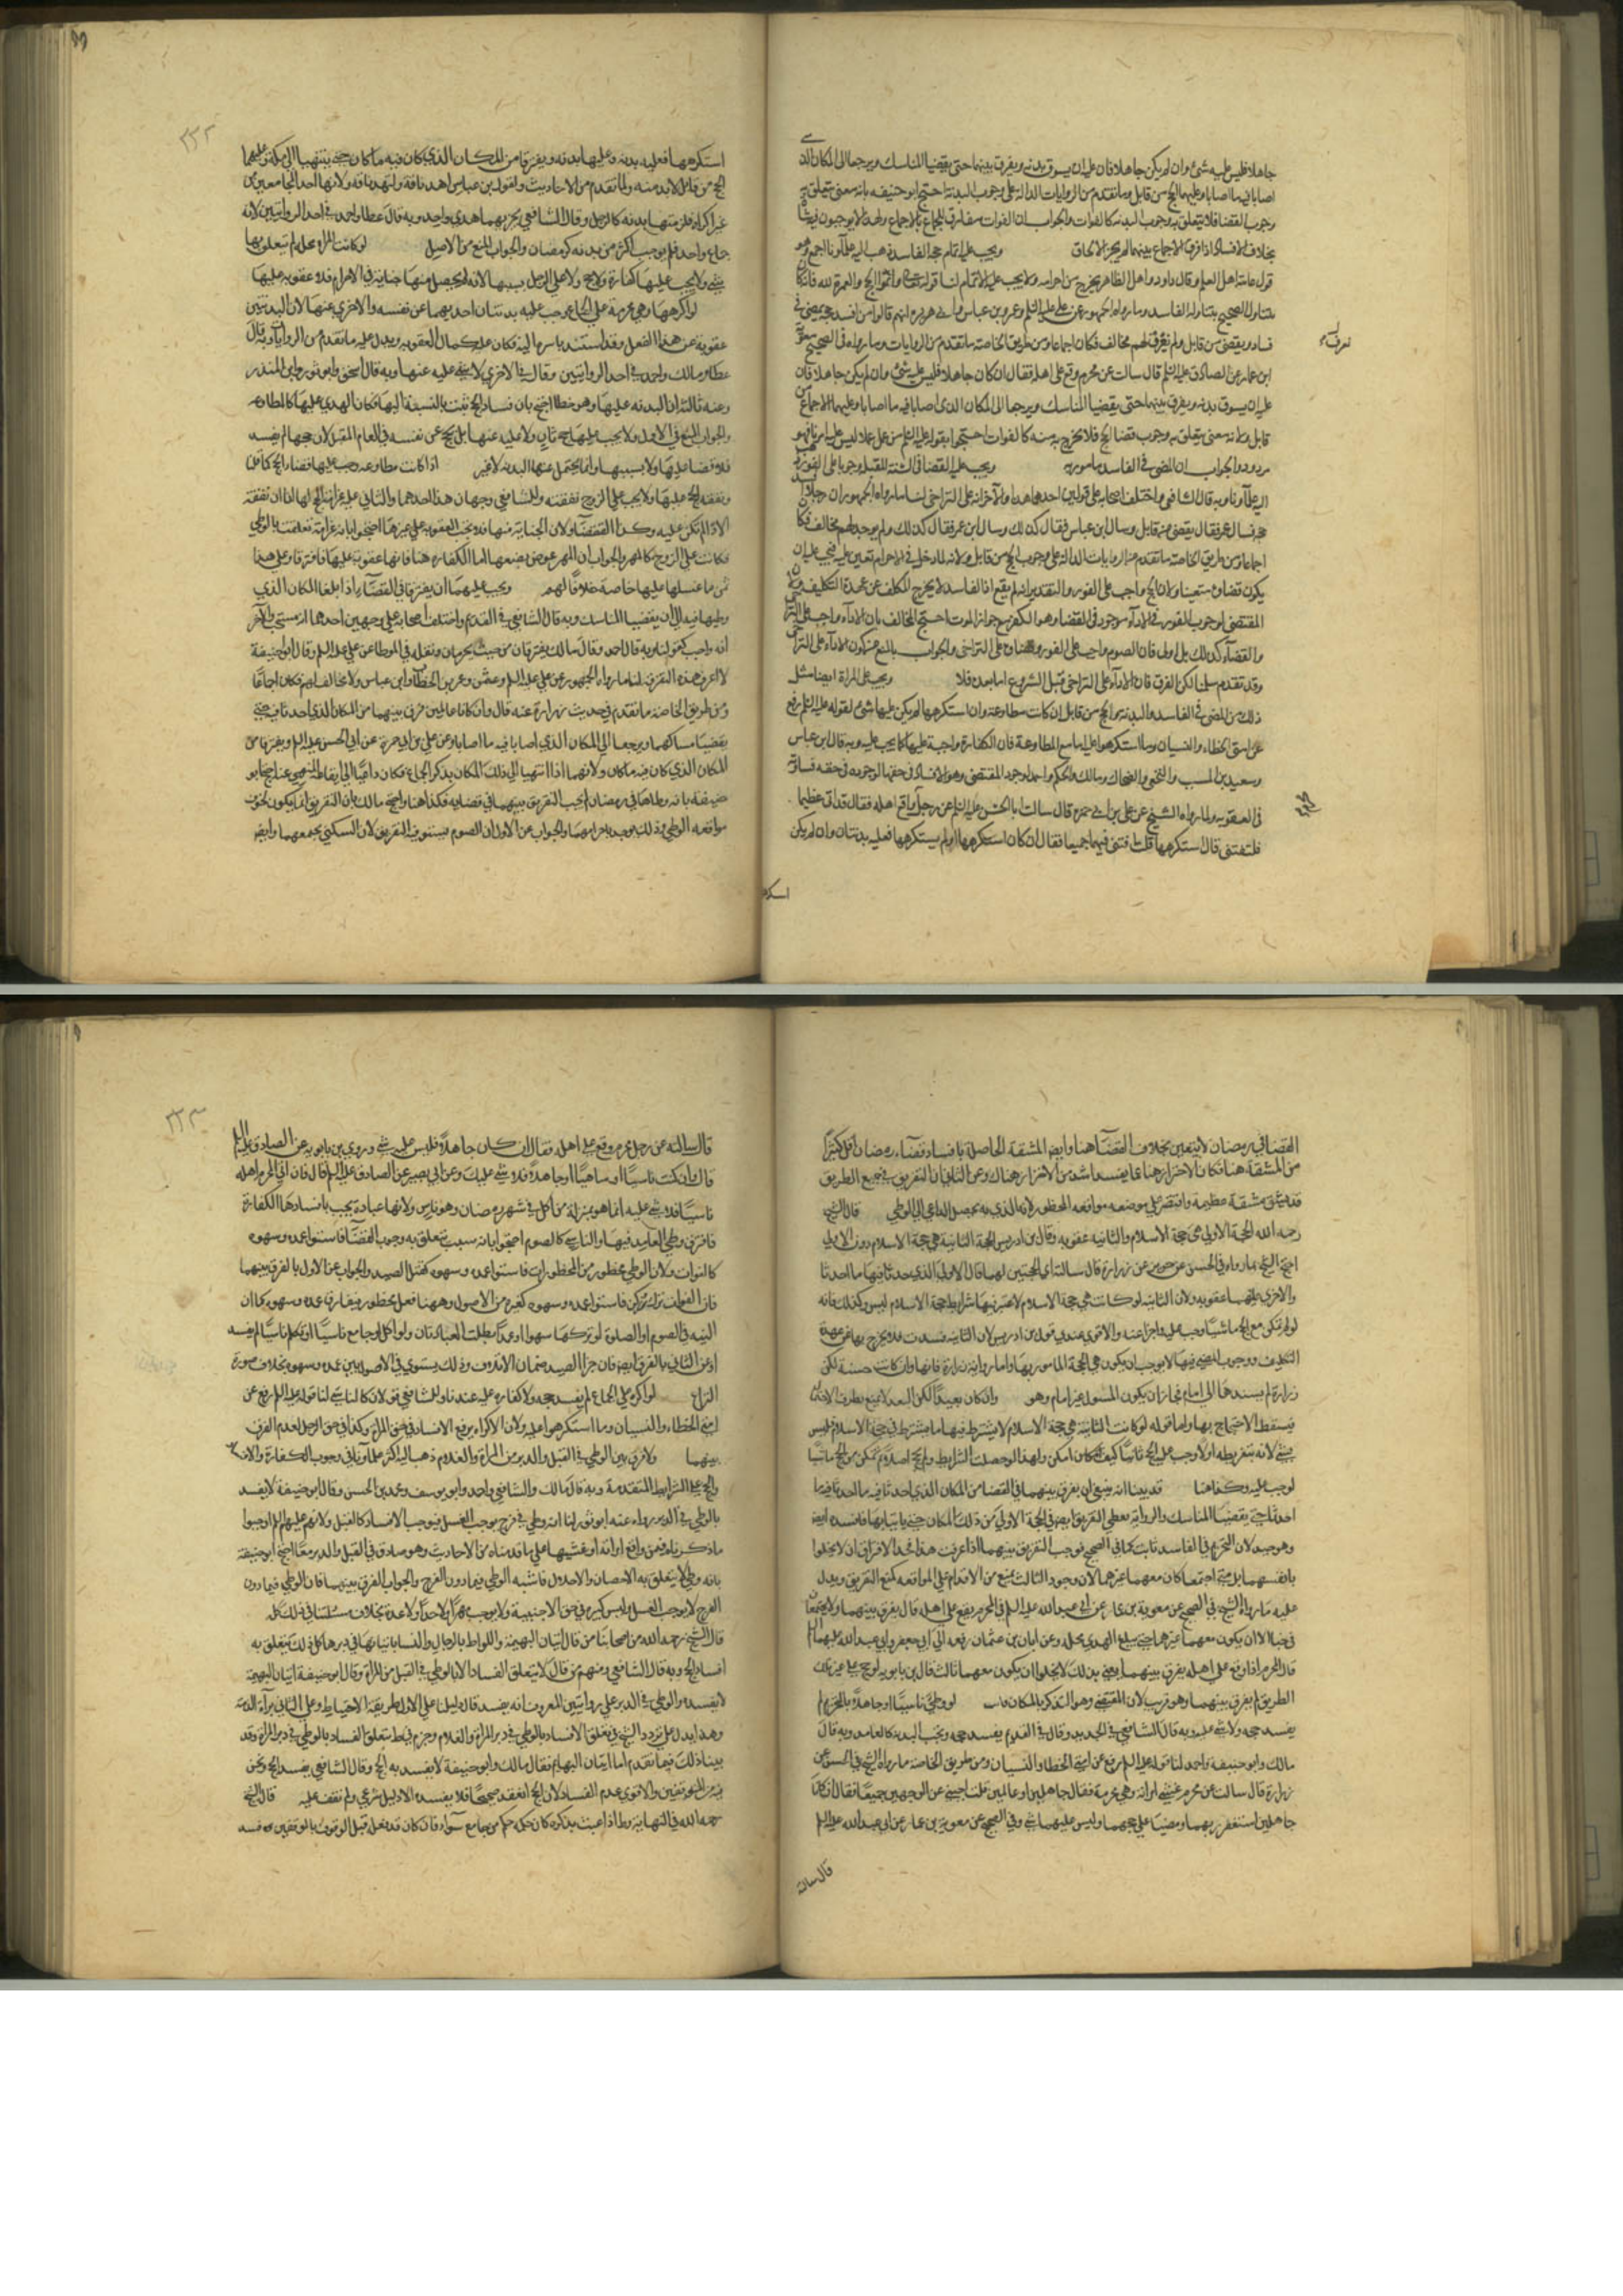 جاهلا فليس عليه شئ وان لم يكن جاهلا فان عليه ان يسوق بدنة ويفرق بينهما حتى يقضيا المناسك ويرجعا الى المكان الذى
اصابا فيه ما اصابا وعليهما الحج من قابل وما تقدم من الروايات الدالة على وجوب البدنة احتج ابو حنيفه بانه معنى يتعلق به
وجوب القضا فلا يتعلق به وجوب البدنة كالفوات والجواب ان الفوات مفارق للجماع بالاجماع ولهذا لا يوجبون فيه شاة
بخلاف الافساد واذا فرق الاجماع بينهما لم يجز الالحاق ويجب عليه اتمام حجه الفاسد ذهب اليه علماونا اجمع وهو
قول عامة اهل العلم وقال داود واهل الظاهر يخرج من احرامه ولا يجب عليه الاتمام لنا قوله تعالى واتموا الحج والعمرة لله فانه كما
يتناول الصحيح يتناول الفاسد وما رواه الجمهور عن على عليه السلم وعمر وبن عباس وابى هريره انهم قالوا من افسد حجه يمضى فى
فساده ويقضى من قابل ولم نعرف لهم مخالف فكان اجماعا ومن طريق الخاصة ما تقدم من الروايات وما رواه فى الصحيح معوية
نعرف
ابن عمار عن الصادق عليه السلم قال سالت عن محرم وقع على اهله فقال ان كان جاهلا فليس عليه شئ وان لم يكن جاهلا فان
عليه ان يسوق بدنه ويفرق بينهما حتى يقضيا المناسك ويرجعا الى المكان الذى اصابا فيه ما اصابا وعليهما الحج من
قابل ولانه معنى يتعلق به وجوب قضا الحج فلا يخرج به منه كالفوات احتجوا بقوله عليه السلم من عمل عملا ليس عليه امرنا فهو
مردود والجواب ان المضى فى الفاسد مامور به ويجب عليه القضا فى السنة المقبلة وجوبا على الفور ذهب
اليه علماونا وبه قال الشافعى واختلف اصحابه على قولين احدهما هذا والاخر انه على التراخى لنا ما رواه الجمهور ان رجلا افسد
حجه فسال عمر فقال يقضى من قابل وسال ابن عباس فقال كذلك وسال ابن عمر فقال كذلك ولم يوجد لهم مخالف فكان
اجماعا ومن طريق الخاصة ما تقدم من الروايات الدالة على وجوب الحج من قابل ولانه لما دخل فى الاحرام تعين عليه فيجب عليه ان
يكون قضاوه متعينا ولان الحج واجب على الفور والتقدير انه لم يقع اذ الفاسد لا يخرج المكلف عن عهدة التكليف
المقتضى لوجوب الفور فى الاداء موجود فى القضا وهو المكفر مع جواز الموت احتج المخالف بان الاداء واجب على التراخى
والقضاء كذلك بل اولى فان الصوم واجب على الفور وقضاوه على التراخى والجواب بالمنع من كون الاداء على التراخى
وقد تقدم سلمنا لكن الفرق فان الاداء على التراخى قبل الشروع اما بعده فلا ويجب على المراة ايضا مثل
ذلك من المضى فى الفاسد والبدنة والحج من قابل ان كانت مطاوعة وان استكرهها لم يكن عليها شئ لقوله عليه السلم رفع
عن امتى الخطاء والنسيان وما استكرهوا عليه اما مع المطاوعة فان الكفارة واجبة عليها كما يجب عليه وبه قال ابن عباس
وسعيد بن المسيب والنخعى والضحاك ومالك والحكم واحمد لوجود المقتضى وهو الافساد فى حقها لوجوده فى حقه فساوته
فى العقوبه ولما رواه الشيخ عن على بن ابى حمزه قال سالت ابا الحسن عليه السلم عن رجل واقع اهله فقال قد اتى عظيما
قلت افتنى قال استكرهها قلت افتنى فيهما جميعا فقال ان كان استكرهها او لم يستكرهها فعليه بدنتان وان لم يكن
استكرهها
٢٢٢
استكرهها فعليه بدنه وعليها بدنه ويفترقا من المكان الذى كان فيه ما كان حتى ينتهيا الى مكة وعليهما
الحج من قابل لا بد منه ولما تقدم من الاحاديث ولقول بن عباس اهد ناقة ولتهد ناقة ولانها احد المجامعين من
غير اكراه فلزمتها بدنه كالرجل وقال الشافعي يجزيهما هدى واحد وبه قال عطا واحمد فى احد الروايتين لانه
جماع واحد فلم يوجب اكثر من بدنه كرمضان والجواب المنع من الاصل لو كانت المراة محلة لم يتعلق بها
شئ ولا يجب عليها كفارة ولا حج ولا على الرجل بسببها لانه لم يحصل منها جناية فى الاحرام فلا عقوبه عليها
لو اكرهها وهى محرمة على الجماع وجب عليه بدنتان احديهما عن نفسه والاخرى عنها لان البدنتين
عقوبة عن هذا الفعل وقد استند باسره اليه فكان عليه كمال العقوبه ويدل عليه ما تقدم من الروايات وبه قال
عطا ومالك واحمد فى احد الروايتين وقال فى الاخرى لا شئ عليه عنها وبه قال اسحق وابو ثور وابن المنذر
وعنه ثالثة ان البدنه عليها وهو خطا احتج بان فساد الحج ثبت بالنسبة اليها فكان الهدى عليها كالمطاوعه
والجواب المنع فى الاول ولا يجب عليها حج ثان ولا عليه عنها بل يحج عن نفسه فى العام المقبل لان حجها لم يفسد
فلا قضا عليها ولا بسببها وانما يحتمل عنها البدنه لا غير اذا كانت مطاوعه وجب عليها قضاء الحج كما قلنا
ونفقة الحج عليها ولا يجب على الزوج نفقته وللشافعي وجهان هذا احدهما والثانى على غرامة الحج لها لنا ان نفقة
الاداء لم تكن عليه وكذا القضاء ولان الجناية منها فلا تجب العقوبه على غيرها احتجوا بانه غرامة تعلقت بالوطى
فكانت على الزوج كالمهر والجواب ان المهر عوض بضعها اما الكفاره هنا فانها عقوبه عليها فافترقا وعلى هذا
ثمن ما غسلها عليها خاصه خلافا لهم ويجب عليهما ان يفترقا فى القضاء اذا بلغا المكان الذى
وطيها فيه الى ان يقضيا المناسك وبه قال الشافعي فى القديم واختلف اصحابه على وجهين احدهما انه مستحب والاخر
انه واجب كقولنا وبه قال احمد وقال مالك يفترقان من حيث يحرمان ونقله فى الموطا عن على عليه السلم وقال ابو حنيفة
لا اعرف هذه التفرقة لنا ما رواه الجمهور عن على عليه السلم وعمر بن الخطاب وابن عباس ولا مخالف لهم فكان اجماعا
ومن طريق الخاصة ما تقدم فى حديث زرارة عنه قال وان كانا عالمين فرق بينهما من المكان الذى احدثا فيه حتى
يقضيا مناسكهما ويرجعا الى المكان الذى اصابا فيه ما اصابا وعن على بن ابى حمزة عن ابى الحسن عليه السلم ويفترقا من
المكان الذى كان فيه ما كان ولانهما اذا انتهيا الى ذلك المكان يذكر الجماع فكان داعيا الى ايقاعه المنهى عنه احتج ابو
حنيفة بانه وطاها فى رمضان لم يجب التفريق بينهما فى قضايه فكذا هنا واحتج مالك بان التفريق انما يكون لخوف
مواقعه الوطى وذلك يوجد باحرامهما والجواب عن الاول ان الصوم يستوى فى التفريق لان السكنى يجمعهما وايضا
القضا فى رمضان لا يتعين بخلاف القضاء هنا وايضا المشقة الحاصلة بافساد قضاء رمضان اقل كثيرا
من المشقة هنا فكان الاحتراز هنا عما يفسد اشد من الاحتراز هناك وعن الثانى ان التفريق فى جميع الطريق
فيه مشقة عظيمة وانتظر على موضعه مواقعه المحظور لانه الذى به يحصل الداعى الى الوطى قال الشيخ
رحمه الله الحجة الاولى هى حجة الاسلام والثانيه عقوبه وقال بن ادريس الحجة الثانية هى حجة الاسلام دون الاولى
احتج الشيخ بما رواه فى الحسن عن حريز عن زرارة قال سالته اى الحجتين لهما قال الاولى الذى احدثا فيها ما احدثا
والاخرى عليهما عقوبه ولان الثانية لو كانت هى حجة الاسلام لاعتبر فيها شرايط حجة الاسلام وليس كذلك فانه
لو لم تكن مع الحج ماشيا وجب عليه واجزا عنه والاقوى عندى قول بن ادريس لان الثانية فسدت فلا يخرج بها عن عهدة
التكليف ووجوب المضى فيها لا يوجب ان يكون هى الحجة المامور بها واما رواية زرارة فانها وان كانت حسنة لكن
زرارة لم يسندها الى امام فجاز ان يكون المسئول غير امام وهو وان كان بعيدا لكن البعد لا يمنع تطرق الاحتمال
فيسقط الاحتجاج بها واما قوله لو كانت الثانية هى حجة الاسلام لاشترط فيها ما يشترط فى حجة الاسلام فليس
بشئ لانه بتفريطه اولا وجب عليه الحج ثانيا كيف كان امكن ولهذا لو حصلت الشرايط ولم يحج اصلا ثم تمكن من الحج ماشيا
لوجب عليه وكذا هنا قد بينا انه ينبغى ان يفرق بينهما فى القضا من المكان الذى احدثا فيه ما احدثا فيما
احدثا حتى يقضيا المناسك والرواية تعطى التفريق ايضا فى الحجة الاولى من ذلك المكان حتى ياتيا بها فاسده ايضا
وهو جيد لان التحريم فى الفاسد ثابت كما فى الصحيح فوجب التفريق بينهما اذا عرفت هذا فحد الافتراق ان لا يخلوا
بانفسهما بل متى اجتمعا كان معهما غيرهما لان وجود الثالث يمنع من الاقدام على المواقعه كمنع التفريق ويدل
عليه ما رواه الشيخ فى الصحيح عن معوية بن عمار عن ابى عبد الله عليه السلم فى المحرم يقع على اهله قال يفرق بينهما ولا يجتمعان
فى خبا الا ان يكون معهما غيرهما حتى يبلغ الهدى محله وعن ابان بن عثمان رفعه الى ابى جعفر وابى عبد الله عليهما السلم
قالا المحرم اذا وقع على اهله يفرق بينهما يعنى بذلك لا يخلوا ان يكون معهما ثالث قال بن بابويه لو حج على غير تلك
الطريق لم يفرق بينهما وهو قريب لان المقتضى وهو التذكر بالمكان فات لو وطى ناسيا او جاهلا بالتحريم لم
يفسد حجه ولا شئ عليه وبه قال الشافعي فى الجديد وقال فى القديم يفسد حجه وتجب البدنه كالعامد وبه قال
مالك وابو حنيفة واحمد لنا قوله عليه السلم رفع عن امتى الخطا والنسيان ومن طريق الخاصة ما رواه الشيخ فى الحسن عن
زرارة قال سالت عن محرم غشى امراته وهى محرمة فقال جاهلين او عالمين قلت اجبنى عن الوجهين جميعا فقال ان كانا
جاهلين استغفرا ربهما ومضيا على حجهما وليس عليهما شئ وفى الصحيح عن معوية بن عمار عن ابى عبد الله عليه السلم
قال سالته
٢٢٣
قال سالته عن رجل محرم وقع على اهله فقال ان كان جاهلا فليس عليه شئ وروى بن بابويه عن الصادق عليه السلم
قال وان كنت ناسيا او ساهيا او جاهلا فلا شئ عليك وعن ابى بصير عن الصادق عليه السلم قال فان اتى المحرم اهله
ناسيا فلا شئ عليه انما هو بمنزلة من اكل فى شهر رمضان وهو ناس ولانها عبادة يجب بافسادها الكفارة
فافترق وطى العامد فيها والناسى كالصوم احتجوا بانه سبب يتعلق به وجوب القضاء فاستوى عمده وسهوه
كالفوات ولان الوطى محظور من المحظورات فاستوى عمده وسهوه كقتل الصيد والجواب عن الاول بالفرق بينهما
فان الفوات ترك ركن فاستوى عمده وسهوه كغيره من الاصول وههنا فعل محظور فيفارق عمده وسهوه كما ان
النيه فى الصوم او الصلوة لو تركها سهوا او عمدا بطلت العبادتان ولو اكل او جامع ناسيا او تكلم ناسيا لم يفسد
وعن الثانى بالفرق ايضا فان جزا الصيد ضمان الاتلاف وذلك يستوى فى الاصول بين عمده وسهوه بخلاف صورة
النزاع لو اكره على الجماع لم يفسد حجه ولا كفارة عليه عندنا وللشافعي قولان كالناسى لنا قوله عليه السلم رفع عن
امتى الخطاء والنسيان وما استكرهوا عليه ولان الاكراه يرفع الافساد فى حق المراة وكذا فى حق الرجل لعدم الفرق
بينهما ولا فرق بين الوطى فى القبل والدبر من المراة والغلام ذهب اليه اكثر علماونا فى وجوب الكفارة والافساد
والحج على الشرايط المتقدمة وبه قال مالك والشافعي واحمد وابو يوسف ومحمد بن الحسن وقال ابو حنيفة لا يفسد
بالوطى فى الدبر رواه عنه ابو ثور لنا انه وطى فى فرج يوجب الغسل فيوجب الافساد كالقبل ولانهم عليهم السلم اوجبوا
ما ذكرناه فيمن واقع امراته او غشيها على ما قدمناه من الاحاديث وهو صادق فى القبل والدبر معا احتج ابو حنيفة
بانه وطى لا يتعلق به الاحصان والاحلال فاشبه الوطى فيما دون الفرج والجواب الفرق بينهما فان الوطى فيما دون
الفرج لا يوجب الغسل وليس كبيرة فى حق الاجنبية ولا يوجب مهرا ولا حدا ولا عدة بخلاف مسئلتنا فى ذلك كله
قال الشيخ رحمه الله من اصحابنا من قال اتيان البهيمة واللواط بالرجال والنسا باتيانها فى دبرها كل ذلك يتعلق به
افساد الحج وبه قال الشافعي ومنهم من قال لا يتعلق الفساد الا بالوطى فى القبل من المراة وقال ابو حنيفة اتيان البهيمة
لا يفسده والوطى فى الدبر على روايتين المعروف انه يفسد قال دليلنا على الاول طريقة الاحتياط وعلى الثانى براءة الذمة
وهذا يدل على تردد الشيخ فى تعلق الافساد بالوطى فى دبر المراة والغلام وجزم فى المبسوط بتعلق الفساد بالوطى فى دبر المراة وقد
بينا ذلك فيما تقدم اما اتيان البهايم فقال مالك وابو حنيفة لا يفسد به الحج وقال الشافعي يفسد الحج ونحن
فيه من المتوقفين والاقوى عدم الفساد لان الحج انعقد صحيحا فلا يفسده الا دليل شرعى ولم نقف عليه قال الشيخ
رحمه الله فى النهاية وطا اذا عبث بذكره كان حكمه حكم من جامع سواء فان كان قد فعل قبل الوقوف بالموقفين فسد